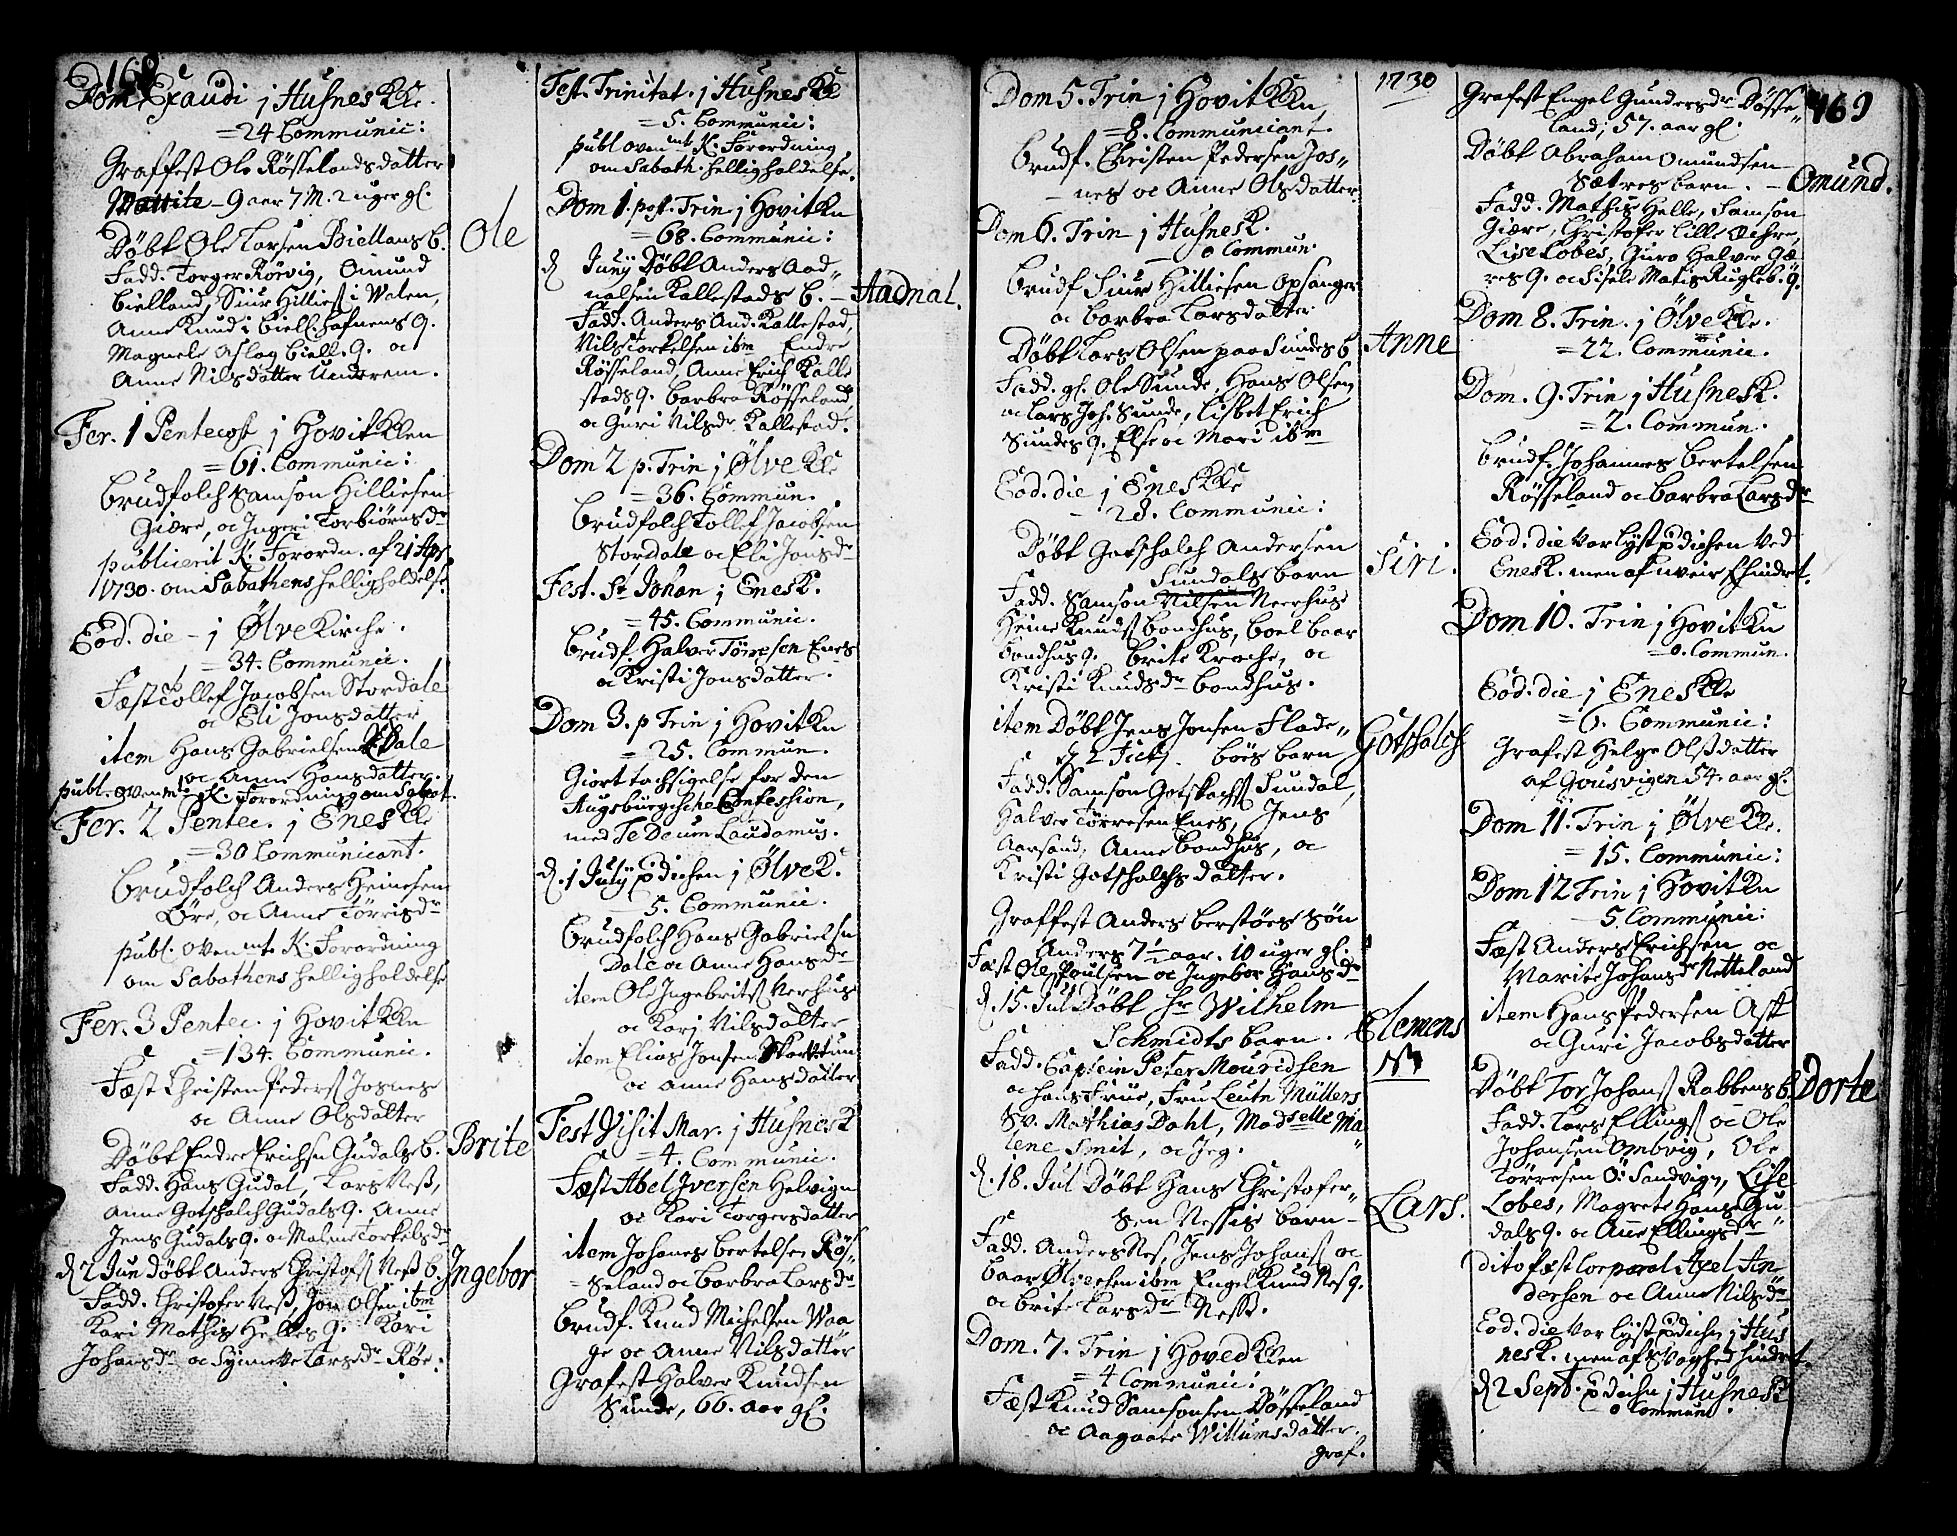 168
Dom Exaudi j Husnes Kke.
= 24 Communic:
Graffest Ole Rösselands datter
Marite - 9 aar 7 M. 2 uger gl.
Döbt Ole Larsen Biellans b. Ole
Fadd. Torger Rörvig, Omund
Bielland, Siur Hillies i Walen,
Anne Knud i Biell. hafnens q.
Magnele Aslag Biell. q. oc
Anne Nils datter Underem.
Fer. 1 Pentecost j Hovit Kken
= 61. Communic:
Brudfolch Samson Hilliesen
Giære, oc Ingeri Torbiörnsdr
publicerit K. Forordn. af 21 Apr.
1730. om Sabathens helligholdelse.
Eod. die - j Ölve Kirche.
= 34. Communic.
Fæst Tollef Jacobsen Stordale
oc Eli Jonsdatter
item Hans Gabrielsen Dale
oc Anne Hansdatter.
publ. ovenmt K. Forordning om Sabat.
Fer. 2 Pentec. j Enes Kke
= 30 Communicant.
Brudfolch Anders Heinesen
Öre, oc Anne Törrisdr
publ. ovenmte K. Forordning
om Sabathens helligholdelse
Fer. 3 Pentec. j Hovit Kken
= 134. Communic.
Fæst Christen Peders Josnes
oc Anne Olsdatter
Döbt Endre Erichsn Gudals b. Brite
Fadd. Hans Gudal, Lars Ness,
Anne Gotschalch Gudals q. Anne
Jens Gudals q. oc Malene Torkelsdr
d 2 Jun döbt Anders Christofs Ness b. Ingebor
Fadd. Christofer Ness, Jon Olsen ibm
Kari Mathis Helles q. Kari
Johansdr oc Synneve Larsdr Röe.
Fest. Trinitat. j Husnes Kke
= 5. Communic:
publ ovenmt K. Forordning
om Sabath. helligholdelse.
Dom 1. post. Trin j Hovit Kn
= 68. Communic:
d Junij Döbt Anders Aad-
nalsen Kallestads b. - Aadnal.
Fadd. Anders And. Kallestad,
Nils Torkelsen ibm Endre
Rösseland, Anne Erich Kalle
stads q. Barbra Rösseland
oc Guri Nilsdr Kallestad.
Dom 2 p. Trin j Ölve Kke
= 36. Commun.
Brudfolch Tollef Jacobsen
Stordale oc Eli Jonsdr
Fest. St Johan j Enesk.
= 45. Communic.
Brudf Halver Törresen Enes
oc Kristi Jonsdatter.
Dom 3. p Trin j Hovit Kn
= 25. Commun.
Giort tachsigelse for den
Augsburgische Confession,
med Te Deum Laudamus.
d. 1 July pdichen j Ölve K.
5. Communic.
Brudfolch Hans Gabrielsn
Dale oc Anne Hansdr
item Ole Ingebrits Nerhus
oc Kari Nilsdatter
item Elias Jonsen Skortun
oc Anne Hansdatter
Fest Visit Mar. j Husnesk
= 4. Communic.
Fæst Abel Iversen Helvign
oc Kari Torgersdatter
item Johanes Bertelsen Rös-
seland oc Barbra Larsdr
Brudf. Knud Michelsen Waa
ge oc Anne Nilsdatter
Grafest Halver Knudsen
Sunde, 66. aar gl.
1730
Dom 5. Trin j Hovit Kkn
= 8. Communicant.
Brudf. Christen Pedersen Jos-
nes oc Anne Olsdatter
Dom 6. Trin j Husnesk.
o Commun.
Brudf Siur Hilliesen Opsanger
oc Barbra Larsdatter
Döbt Lars Olsen paa Sundes b Anne
Fadd. gl. Ole Sunde, Hans Olsen
oc Lars Joh. Sunde, Lisbet Erich
Sundes q. Else oc Mari ibm
Eod. die j Enes Kke
- 28. Communic:
Döbt Gotschalch Andersen
Sundals barn Siri.
Fadd. Samson Nilsen Neerhus
Heine Knuds Bondhus, Boel Baar
Bondhus q. Brite Krache, oc
Kristi Knudsdr Bondhus.
item Döbt Jens Jonsen Flade-
böes barn Gotschalch
Fadd. Samson Gotskachs Sundal,
Halver Törresen Enes, Jens
Aarsand, Anne Bondhus, oc
Kristi Gotschalchs datter.
Graffest Anders Berstöes Sön
Anders 7 1/2 aar. 10 uger gl.
Fæst Ole Poulsen oc Ingebor Hansdr
d. 15. Jul Döbt Hr Wilhelm
Schmidts barn. Clemens
Fadd. Captein Peter Mouridsen
oc hans Frue, Fru Leutn Müllers
Sr. Mathias Dahl, Madselle Ma-
lene Smit, oc Jeg.
d. 18. Jul Döbt Hans Christofer-
sen Nessis barn - Lars.
Fadd. Anders Nes, Jens Johans oc
Baar Olversen ibm Engel Knud Nes q.
oc Brite Larsdr Ness.
Dom. 7. Trin j Hoved Kken
= 4 Communic:
Fæst Knud Samsonsen Dösseland
oc Aagaate Willumsdatter.
Graf.
169
Grafest Engel Gundersdr Dösse-
land, 57. aar gl.
Döbt Abraham Omundsen
Sætres barn. - Omund.
Fadd. Mathis Helle, Samson
Giære, Christofer Lille Æthre,
Lise Lobes, Guro Halver Gæ-
res q. oc Sisele Matis Rugleb. q.
Dom 8. Trin. j Ölve Kke.
= 22. Communic.
Dom. 9. Trin j Husnesk.
= 2. Commun.
Brudf. Johannes Bertelsen
Rösseland oc Barbra Larsdr
Eod. die var lyst pdichen ved
Enesk. men af uveir hindret.
Dom 10. Trin j Hovit Kn
= o. Commun.
Eod. die j Enes Kke
= 6. Communic:
Grafest Helge Olsdatter
af Gousvigen 54. aar gl.
Dom 11. Trin j Ölve Kke.
= 15. Communic:
Dom 12 Trin j Hovit Kn
5. Communic:
Fæst Anders Erichsen oc
Marite Johansdr Netteland
item Hans Pedersen Ast
oc Guri Jacobsdatter
Döbt Tor Johans Rabbens b. Dorte
Fadd. Lars Ellings oc Ole
Johansen Ombvig, Ole
Törresen Ö. Sandvign, Lise
Lobes, Magrete Hans Gu-
dals q. oc Anne Ellingsdr
dito fæst Corporal Axel An-
dersen oc Anne Nilsdr
Eod. die var lyst pdichn j Hus
nesk. men af svaghed hindret.
d 2 Sept. pdichn j Husnesk
o Commun.